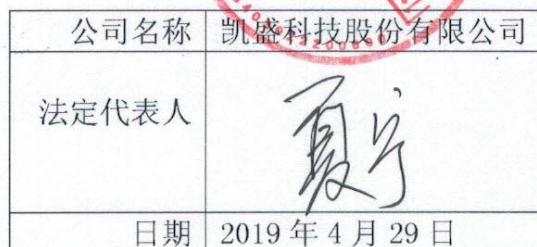 公司名称 凯盛科技股份有限公司
法定代表人 夏宁
日期 2019年4月29日